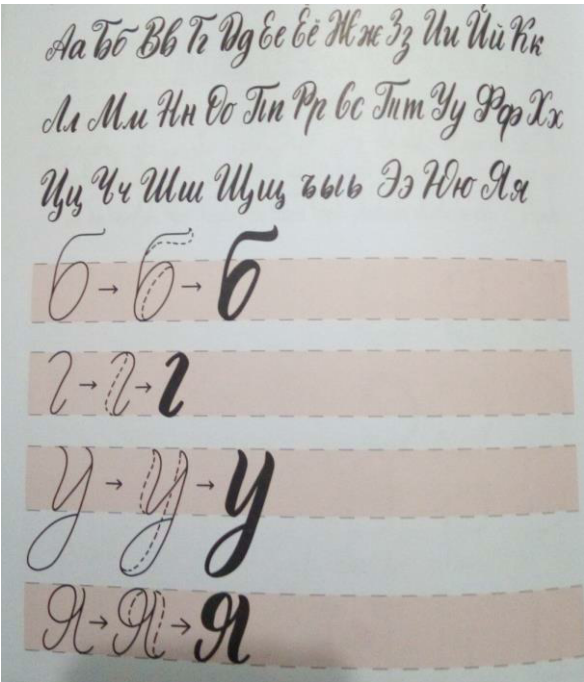 Аа Бб Вв Гг Дд Ее Ёё Жж Зз Ии Йй Кк
Лл Мм Нн Оо Пп Рр Сс Тт Уу Фф Хх
Цц Чч Шш Щщ ъыь Ээ Юю Яя
б → б → б
г → г → г
у → у → у
Я → Я → Я